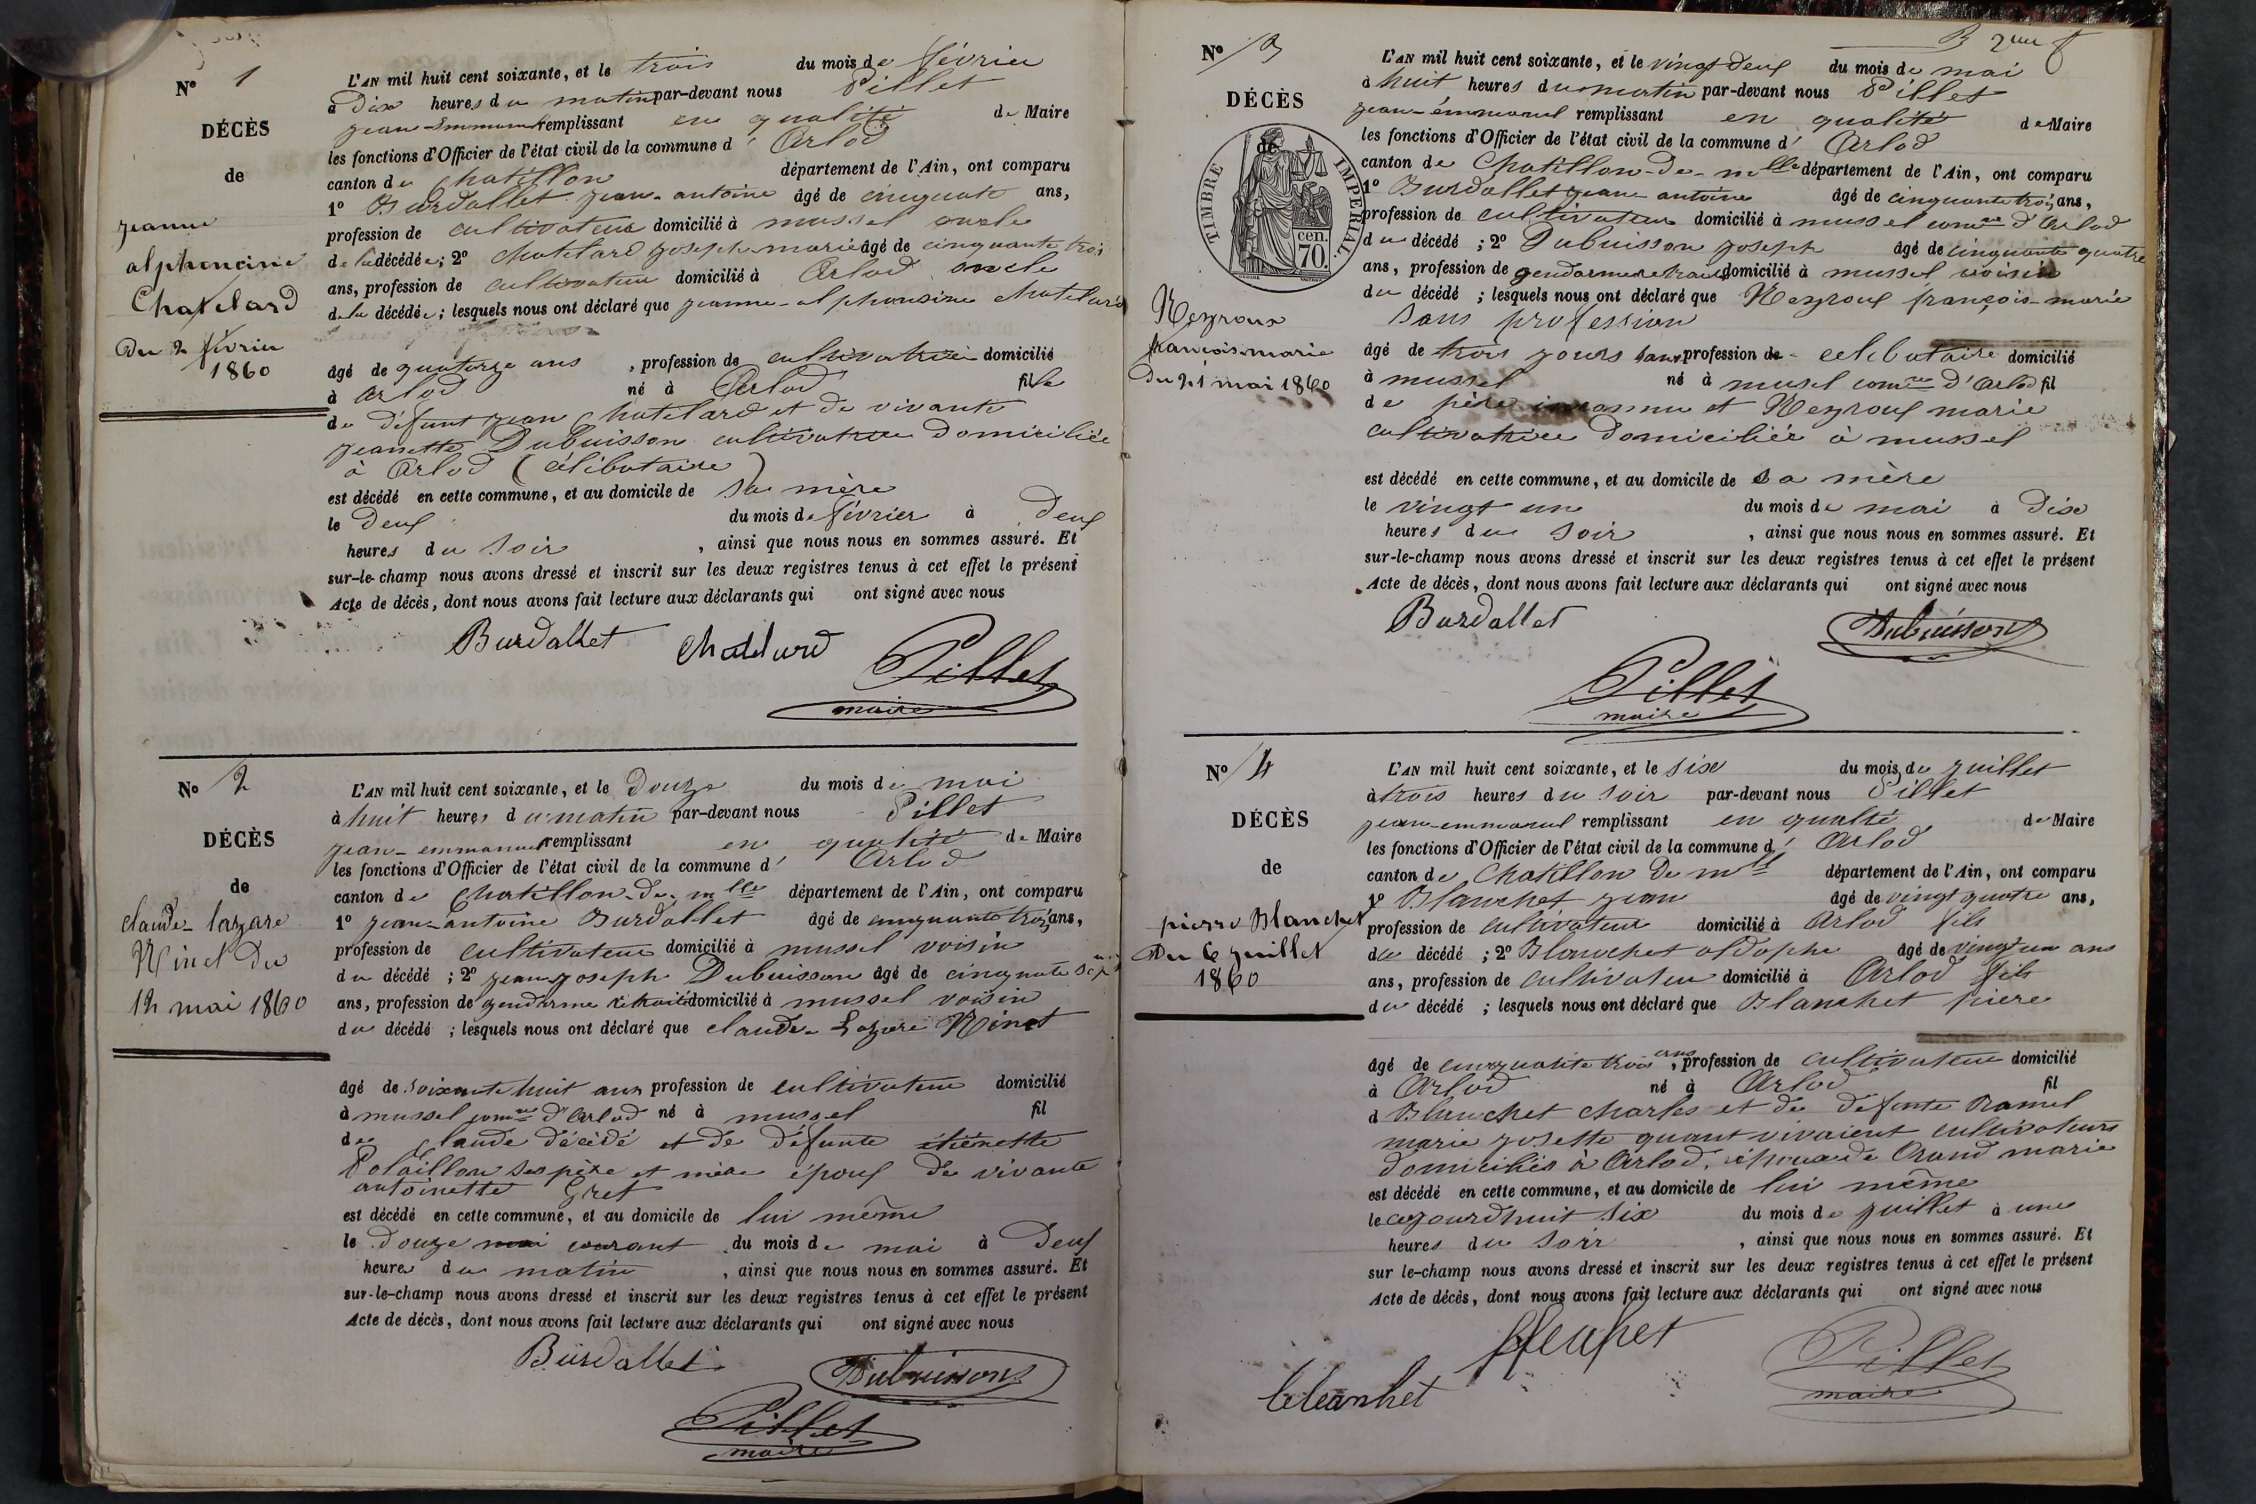 N° 1
DÉCÈS
de
jeanne
alphoncine
Chatelard
Du 2 février
1860
L'AN mil huit cent soixante, et le trois du mois de février
à Dix heures du matin par-devant nous Pillet
jean-Emmanuel remplissant en qualité de Maire
les fonctions d'Officier de l'état civil de la commune d' Arlod
canton de Chatillon département de l'Ain, ont comparu
1° Burdallet jean-antoine âgé de cinquante ans,
profession de cultivateur domicilié à mussel oncle
de la décédée; 2° Chatelard joseph marie âgé de cinquante trois
ans, profession de cultivateur domicilié à Arlod oncle
de la décédée; lesquels nous ont déclaré que jeanne-alphonsine chatelard
âgé de quatorze ans, profession de cultivatrice domicilié
à Arlod né à Arlod fille
de défunt jean Chatelard et de vivante
jeanette Dubuisson cultivatrice Domiciliée
à Arlod (célibataire)
est décédé en cette commune, et au domicile de sa mère
le Deux du mois de février à Deux
heures du soir, ainsi que nous nous en sommes assuré. Et
sur-le-champ nous avons dressé et inscrit sur les deux registres tenus à cet effet le présent
Acte de décès, dont nous avons fait lecture aux déclarants qui ont signé avec nous
Burdallet Chatelard Pillet
maire
N° 2
DÉCÈS
de
claude-lazare
Ninet Du
12 mai 1860
L'AN mil huit cent soixante, et le Douze du mois de mai
à huit heures du matin par-devant nous Pillet
jean-emmanuel remplissant en qualité de Maire
les fonctions d'Officier de l'état civil de la commune d' Arlod
canton de Chatillon-de-mlle département de l'Ain, ont comparu
1° jean-antoine Burdallet âgé de cinquante trois ans,
profession de cultivateur domicilié à mussel voisin
du décédé; 2° jean joseph Dubuisson âgé de cinquante sept
ans, profession de gendarme retraité domicilié à mussel voisin
du décédé; lesquels nous ont déclaré que claude-Lazare Ninet
âgé de soixante huit ans profession de cultivateur domicilié
à mussel comne d'Arlod né à mussel fil
de Claude décédé et de défunte étiénette
Potaillon ses père et mère époux de vivante
antoinette Gret
est décédé en cette commune, et au domicile de lui même
le douze mai courant du mois de mai à Deux
heures du matin, ainsi que nous nous en sommes assuré. Et
sur-le-champ nous avons dressé et inscrit sur les deux registres tenus à cet effet le présent
Acte de décès, dont nous avons fait lecture aux déclarants qui ont signé avec nous
Burdallet Dubuisson
Pillet
maire
N° 3
DÉCÈS
de
TIMBRE IMPERIAL.
cen.
70.
Neyroux
françois-marie
Du 21 mai 1860
L'AN mil huit cent soixante, et le vingt deux du mois de mai
à huit heures du matin par-devant nous Pillet
jean-emmanuel remplissant en qualité de Maire
les fonctions d'Officier de l'état civil de la commune d' Arlod
canton de Chatillon-de-mlle département de l'Ain, ont comparu
1° Burdallet jean antoine âgé de cinquante trois ans,
profession de cultivateur domicilié à mussel comne d'Arlod
du décédé; 2° Dubuisson joseph âgé de cinquante quatre
ans, profession de gendarme retraité domicilié à mussel voisin
du décédé; lesquels nous ont déclaré que Neyroux françois-marie
sans profession
âgé de trois jours sans profession de - celibataire domicilié
à mussel né à musel comne d'Arlod fil
de père inconnu et Neyroux marie
cultivatrice domiciliée à mussel
est décédé en cette commune, et au domicile de sa mère
le vingt un du mois de mai à Dix
heures du soir, ainsi que nous nous en sommes assuré. Et
sur-le-champ nous avons dressé et inscrit sur les deux registres tenus à cet effet le présent
Acte de décès, dont nous avons fait lecture aux déclarants qui ont signé avec nous
Burdallet Dubuisson
Pillet
maire
N° 4
DÉCÈS
de
pierre Blanchet
Du 6 juillet
1860
L'AN mil huit cent soixante, et le six du mois de juillet
à trois heures du soir par-devant nous Pillet
jean-emmanuel remplissant en qualité de Maire
les fonctions d'Officier de l'état civil de la commune d' Arlod
canton de Chatillon De mlle département de l'Ain, ont comparu
1° Blanchet jean âgé de vingt quatre ans,
profession de cultivateur domicilié à Arlod fils
du décédé; 2° Blanchet aldophe âgé de vingt un ans
ans, profession de cultivateur domicilié à Arlod fils
du décédé; lesquels nous ont déclaré que Blanchet piere
âgé de cinquante trois ans, profession de cultivateur domicilié
à Arlod né à Arlod fil
d Blanchet charles et de défunte Ramel
marie josette quant vivaient cultivateurs
domiciliés à Arlod, époux de Crand marie
est décédé en cette commune, et au domicile de lui même
le cejourd'huit six du mois de juillet à une
heures du soir, ainsi que nous nous en sommes assuré. Et
sur le-champ nous avons dressé et inscrit sur les deux registres tenus à cet effet le présent
Acte de décès, dont nous avons fait lecture aux déclarants qui ont signé avec nous
Pillet
maire